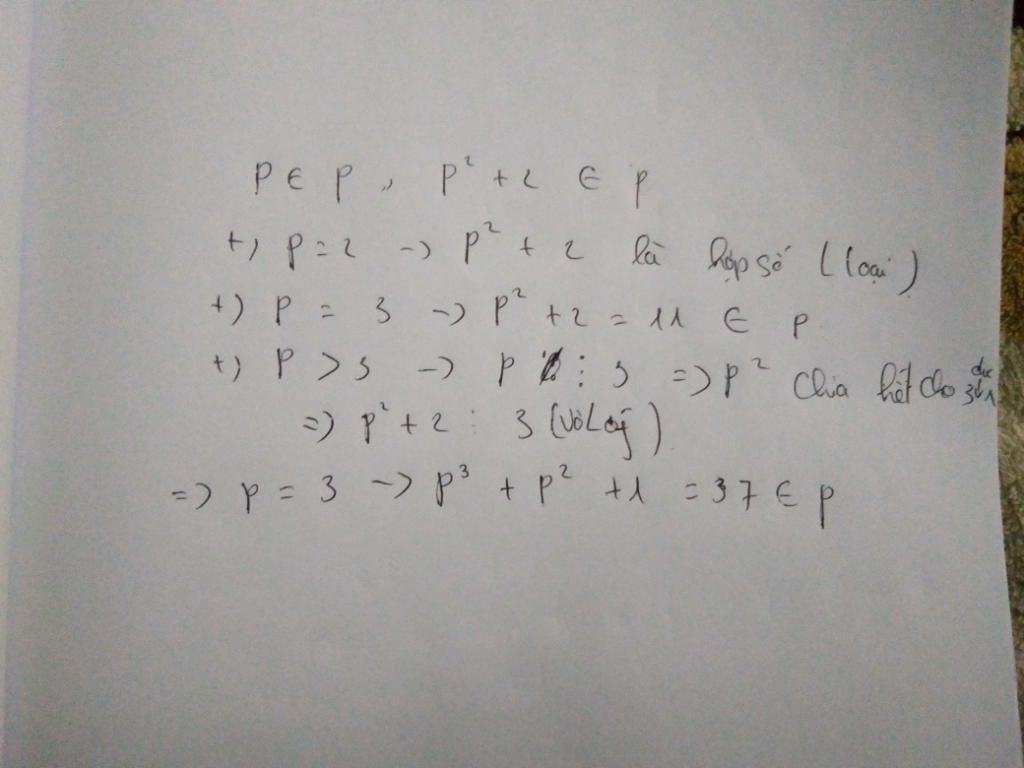 P ∈ p, p² + 2 ∈ p
+) p = 2 -> p² + 2 là hợp số (loại)
+) p = 3 -> p² + 2 = 11 ∈ p
+) p > 3 -> p ⋮ 3 => p² chia hết cho 3 dư 1
=> p² + 2 ⋮ 3 (vô lý).
=> p = 3 -> p³ + p² + 1 = 37 ∈ p